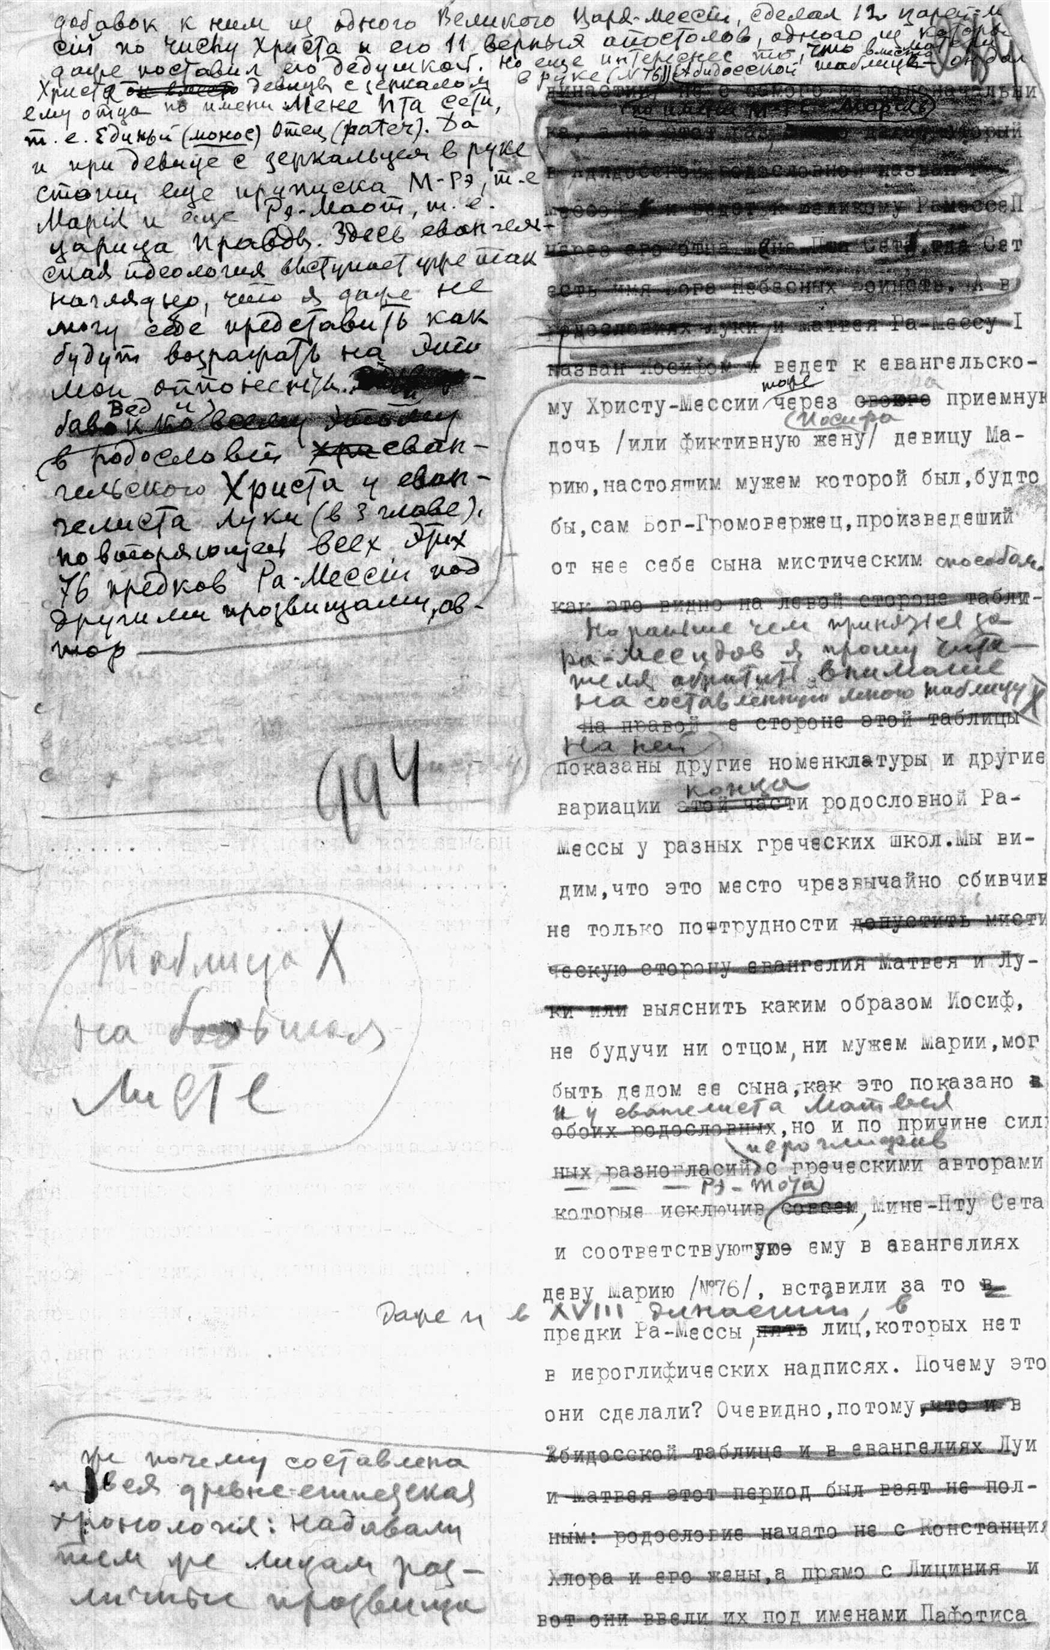 добавок к ним из одного Великого Царя-Мессии, сделал 12 царей-м
сий по числу Христа и его 11 верных апостолов, одного из которы
даже поставил его дедушкой. Но еще интереснее то, что вместо
Христа девицы с зеркалом в руке (№76) Абидосской таблицы он дал
ему отца по имени Мене Пта Сети,
т.е. Единый (монос) Отец (pater). Да
и при девице с зеркальцем в руке
стоит еще приписка М-Рэ, т-е
Мария и еще Рэ-Маот, т.е.
царица Правды. Здесь евангель-
ская идеология выступает уже так
наглядно, что я даже не
могу себе представить как
будут возражать на это
мои оппоненты.
Ведь и
в родословии еван-
гельского Христа у еван-
гелиста Луки (в 3 главе),
повторяющей всех этих
76 предков Ра-Мессии под
другими прозвищами, ав-
тор
994
Таблица X
на большом
листе
же почему составлена
и вся древне-египетская
хронология: надавали
тем же лицам раз-
личные прозвища
династии
ка, а на этот раз
в Абидосской родословной назван
и ведет к великому РамессеII
через его отца Мене Пта Сета, где Сет
есть имя бога небесных воинств. А в
родословиях Луки и Матвея Ра-Мессу I
назван Иосифом и ведет к евангельско-
тоже
му Христу-Мессии через свою приемную
дочь /или фиктивную жену/ девицу Ма-
рию,настоящим мужем которой был,будто
бы,сам Бог-Громовержец,произведеший
от нее себе сына мистическим способом.
как это видно на левой стороне табли-
Но раньше чем приняться за
Ра-Мессидов я прошу чита-
теля обратить внимание
на составленную мною таблицу X
На правой е стороне этой таблицы
На ней
показаны другие номенклатуры и другие
конца
вариации этой части родословной Ра-
Мессы у разных греческих школ.Мы ви-
дим,что это место чрезвычайно сбивчив
не только по трудности допустить мисти
ческую сторону евангелия Матвея и Лу-
ки или выяснить каким образом Иосиф,
не будучи ни отцом,ни мужем Марии,мог
быть дедом ее сына,как это показано в
и у евангелиста Матвея
обоих родословных,но и по причине сил
иероглифов
ных разногласий с греческими авторами
Рэ-Мота
которые исключив совсем, Мине-Пту Сета
и соответствующую ему в авангелиях
деву Марию /№76/, вставили за то в
даже и в XVIII династии, в
предки Ра-Мессы, пять лиц,которых нет
в иероглифических надписях. Почему это
они сделали? Очевидно,потому,что и в
Абидосской таблице и в евангелиях Луи
и Матвея этот период был взят не пол-
ным: родословие начато не с Констанция
Хлора и его жены,а прямо с Лициния и
вот они ввели их под именами Пафотиса